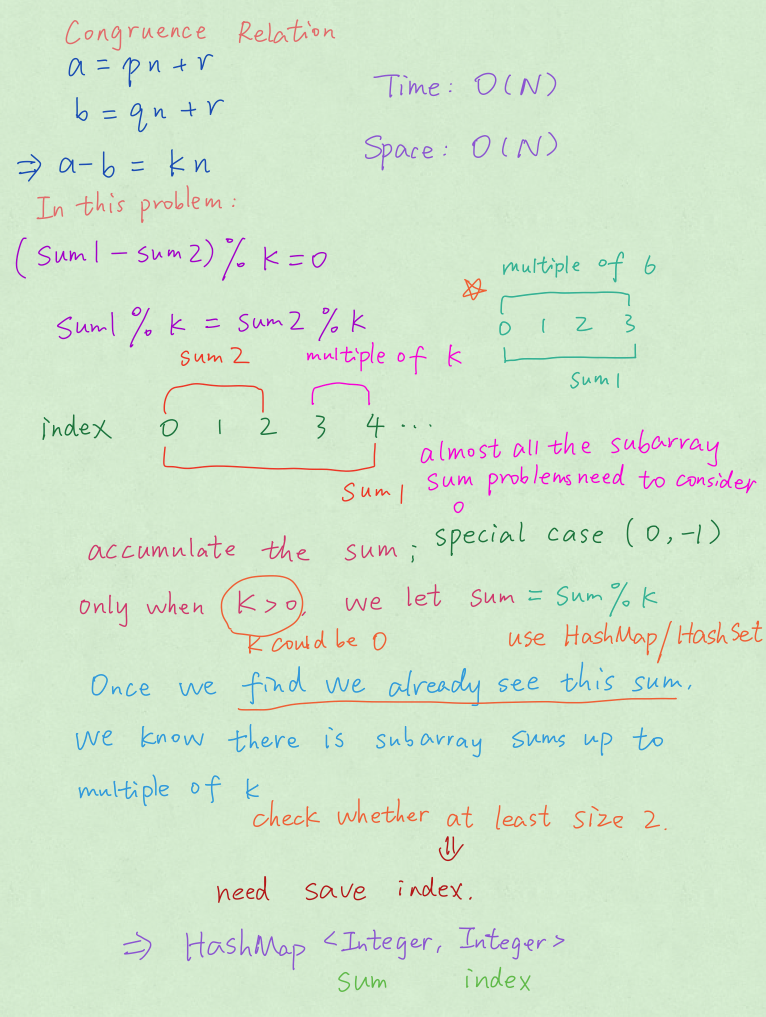 Congruence Relation
a = pn + r
b = qn + r
⇒ a-b = kn
Time: O(N)
Space: O(N)
In this problem:
(sum1 - sum2) % k = 0
sum1 % k = sum2 % k
multiple of 6
0 1 2 3
sum1
sum2 multiple of k
index 0 1 2 3 4 ...
sum1
almost all the subarray
sum problems need to consider
0
accumulate the sum; special case (0, -1)
only when k>0, we let sum = sum % k
k could be 0 use HashMap/HashSet
Once we find we already see this sum.
we know there is subarray sums up to
multiple of k
check whether at least size 2.
⇓
need save index.
⇒ HashMap <Integer, Integer>
sum index